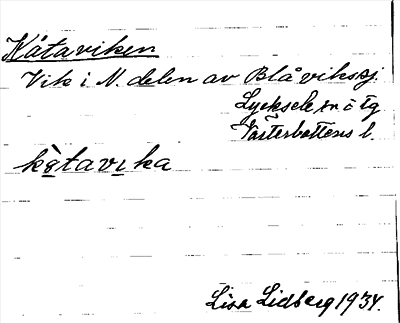 Kåtaviken
Vik i N. delen av Blåviksj.
Lycksele sn o tg
Västerbottens l.
kåtavika
Lisa Lidberg 1934.